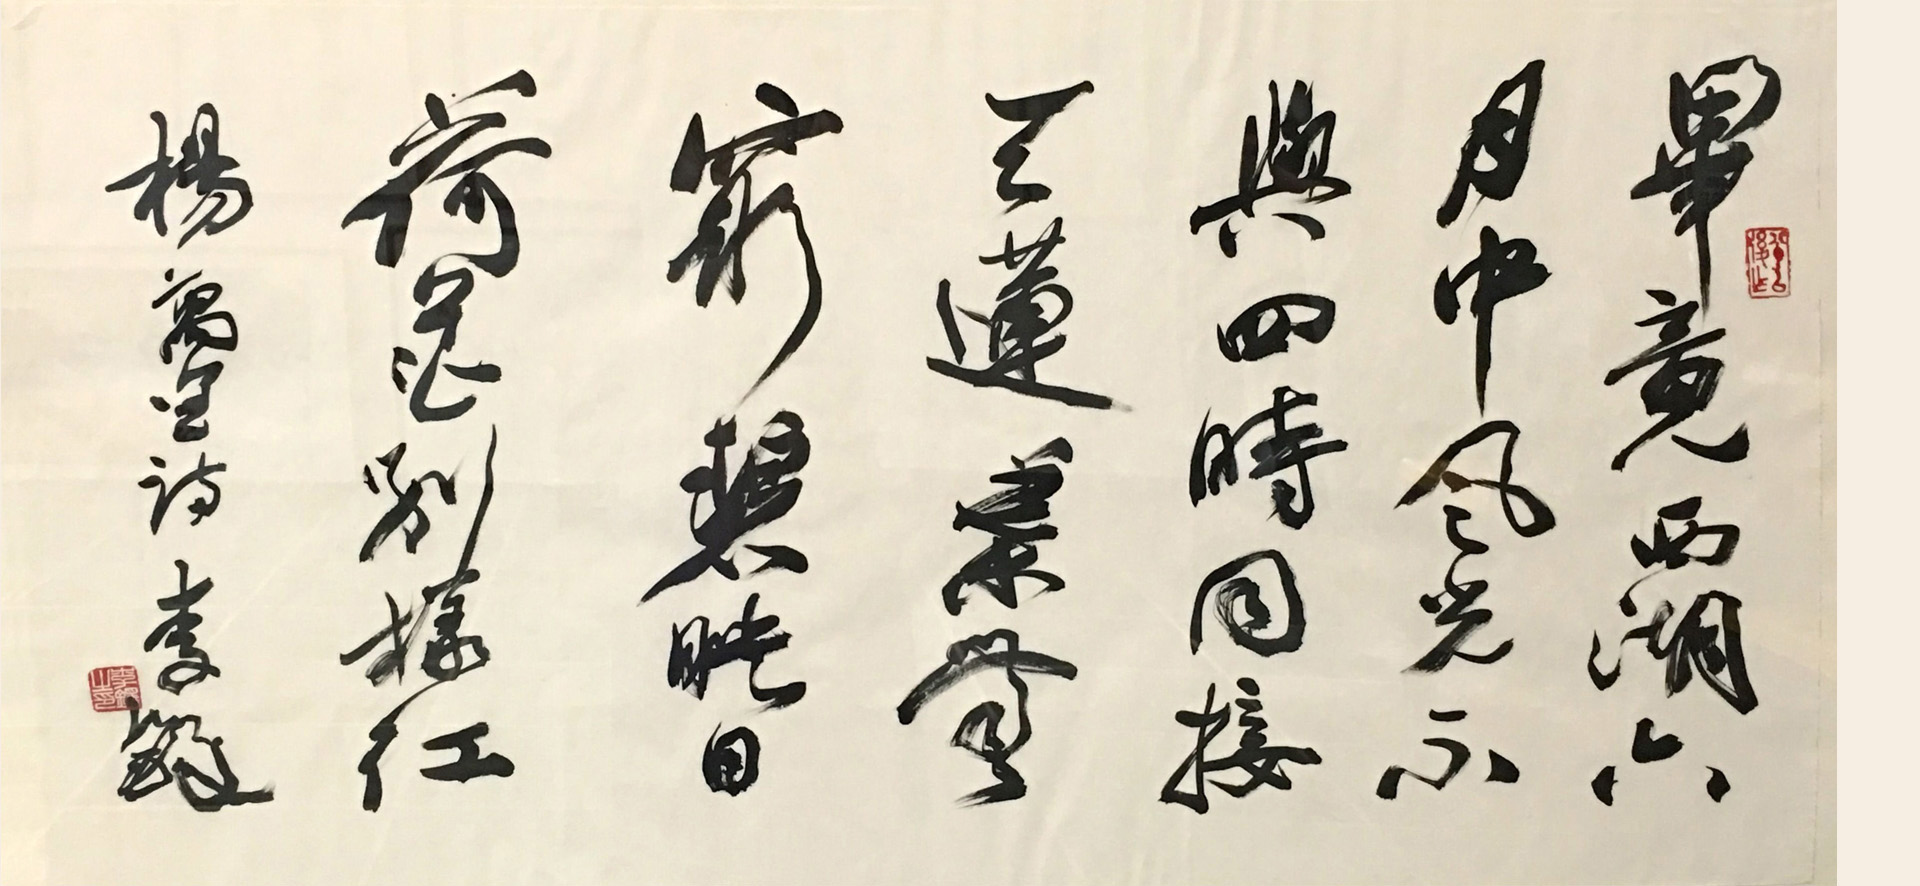 畢竟西湖六
月中風光不
與四時同接
天蓮葉無
窮碧映日
荷花別樣紅
楊萬里詩 李